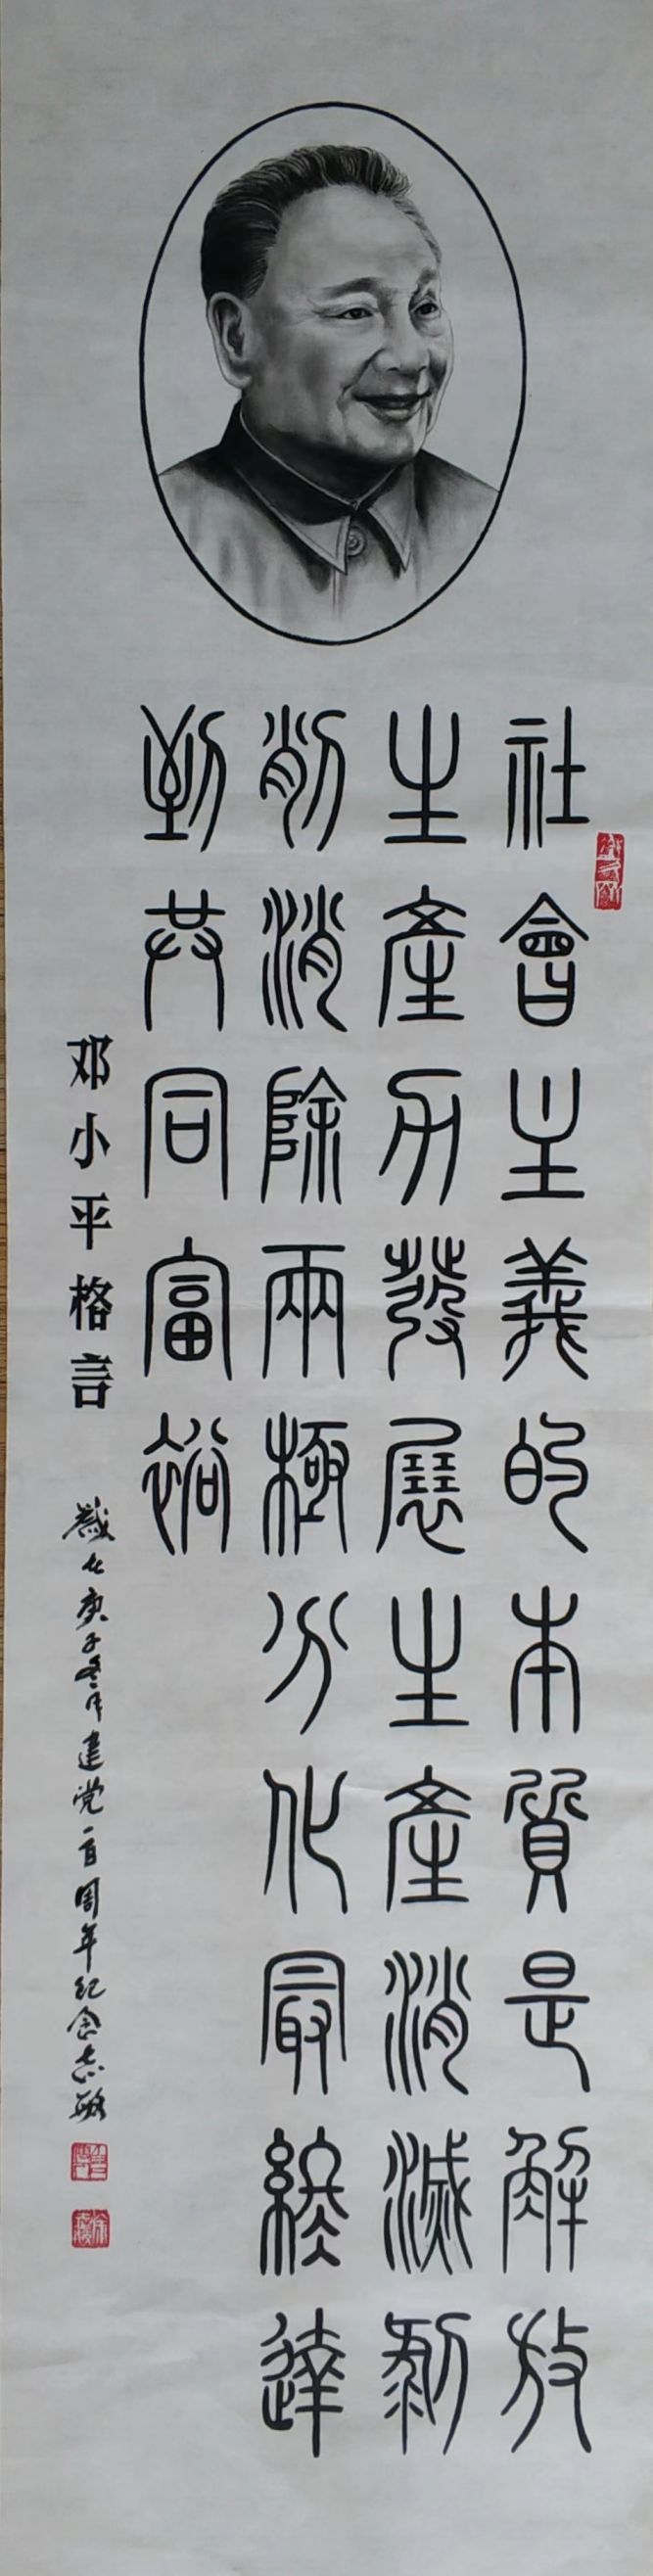 社會主義的本質是解放
生產力發展生產消滅剝
削消除兩極分化最終達
到共同富裕
邓小平格言
歲在庚子冬月建党一百周年纪念志敏